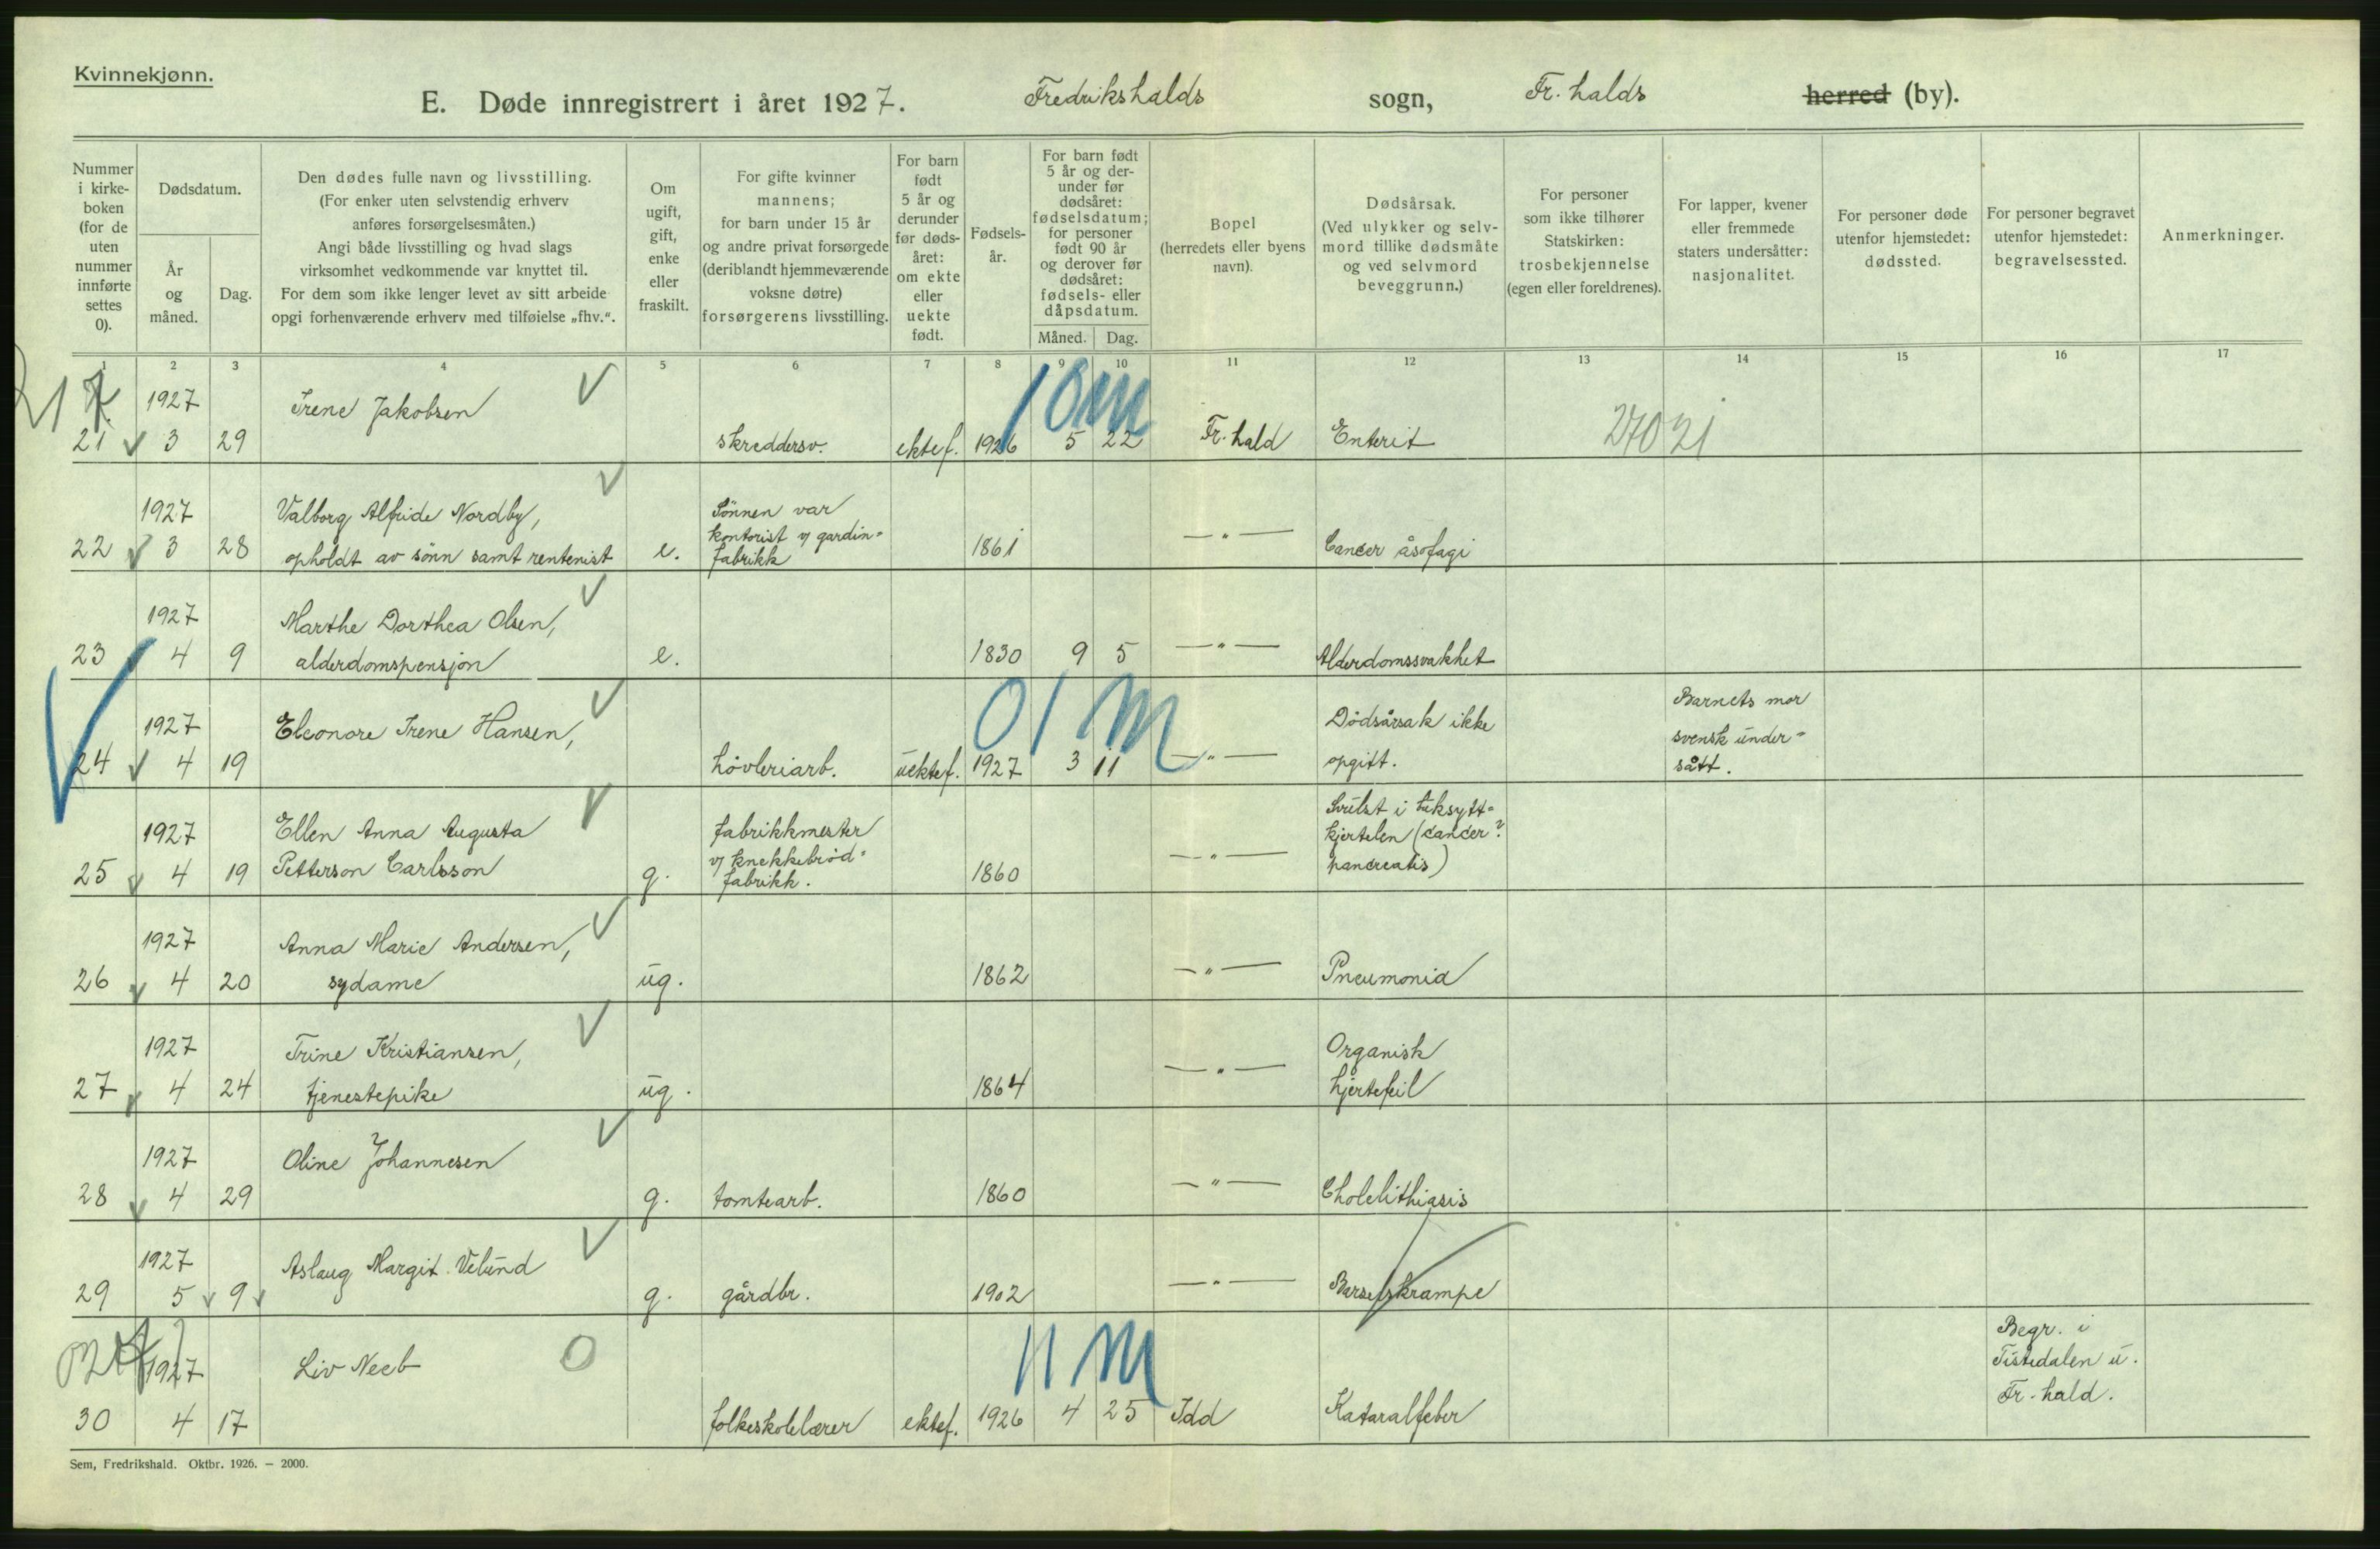 Kvinnekjønn.
E. Døde innregistrert i året 1927. Fredrikshalds sogn, Fr. halds herred (by).
Nummer
i kirke-
boken
(for de
uten
nummer
innførte
settes
0).
Dødsdatum.
År
og
måned.
Dag.
Den dødes fulle navn og livsstilling.
(For enker uten selvstendig erhverv
anføres forsørgelsesmåten.)
Angi både livsstilling og hvad slags
virksomhet vedkommende var knyttet til.
For dem som ikke lenger levet av sitt arbeide
opgi forhenværende erhverv med tilføielse „fhv.“.
Om
ugift,
gift,
enke
eller
fraskilt.
For gifte kvinner
mannens;
for barn under 15 år
og andre privat forsørgede
(deriblandt hjemmeværende
voksne døtre)
forsørgerens livsstilling.
For barn
født
5 år og
derunder
før døds-
året:
om ekte
eller
uekte
født.
Fødsels-
år.
For barn født
5 år og der-
under før
dødsåret:
fødselsdatum;
for personer
født 90 år
og derover før
dødsåret:
fødsels- eller
dåpsdatum.
Måned. Dag.
Bopel
(herredets eller byens
navn).
Dødsårsak.
(Ved ulykker og selv-
mord tillike dødsmåte
og ved selvmord
beveggrunn.)
For personer
som ikke tilhører
Statskirken:
trosbekjennelse
(egen eller foreldrenes).
For lapper, kvener
eller fremmede
staters undersåtter:
nasjonalitet.
For personer døde
utenfor hjemstedet:
dødssted.
For personer begravet
utenfor hjemstedet:
begravelsessted.
Anmerkninger.
1 2 3 4 5 6 7 8 9 10 11 12 13 14 15 16 17
1927 Irene Jakobsen 10 m
21 3 29 skreddersv. ektef. 1926 5 22 Fr. hald Enterit 27021
1927 Valborg Alfride Nordby, Sönnen var
kontorist v/ gardin=
22 3 28 opholdt av sönn samt rentenist e. fabrikk 1861 — " — Cancer åsofagi
1927 Marthe Dorthea Olsen,
23 4 9 alderdomspensjon e. 1830 9 5 — " — Alderdomssvakhet
1927 Eleonore Irene Hansen, 01 m Dödsårsak ikke Barnets mor
svensk under=
24 4 19 hövleriarb. uektef. 1927 3 11 — " — opgitt. sått.
1927 Ellen Anna Augusta fabrikkmester Svulst i buksytt=
v/ knekkebröd= kjertelen (cancer?
25 4 19 Petterson Carlsson g. fabrikk. 1860 — " — pancreatis)
1927 Anna Marie Andersen,
26 4 20 sydame ug. 1862 — " — Pneumonia
1927 Trine Kristiansen, Organisk
27 4 24 tjenestepike ug. 1864 — " — hjertefeil
1927 Oline Johannesen
28 4 29 g. tomtearb. 1860 — " — Cholelithiasis
1927 Aslaug Margit Velund
29 5 9 g. gårdbr. 1902 — " — Barselskrampe
1927 Liv Neeb 0 11 m Begr. i
Tistedalen u.
Fr. hald.
30 4 17 folkeskolelærer ektef. 1926 4 25 Idd Kataralfeber
Sem, Fredrikshald. Oktbr. 1926. – 2000.